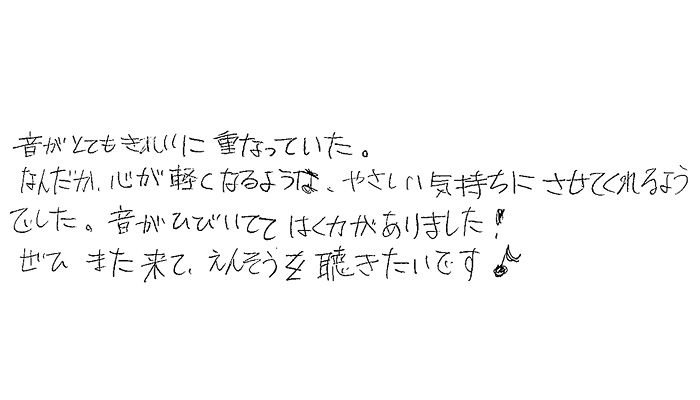 音がとてもきれいに重なっていた。
なんだか、心が軽くなるような、やさしい気持ちにさせてくれるよう
でした。音がひびいててはく力がありました!
ぜひ また来て、えんそうを聴きたいです♪